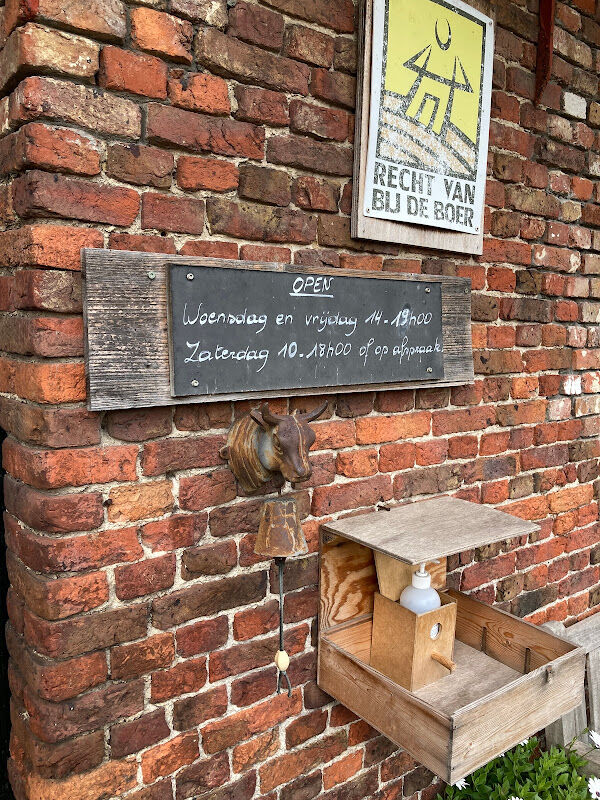 RECHT VAN
BIJ DE BOER
OPEN
Woensdag en vrijdag 14-19h00
Zaterdag 10-18h00 of op afspraak